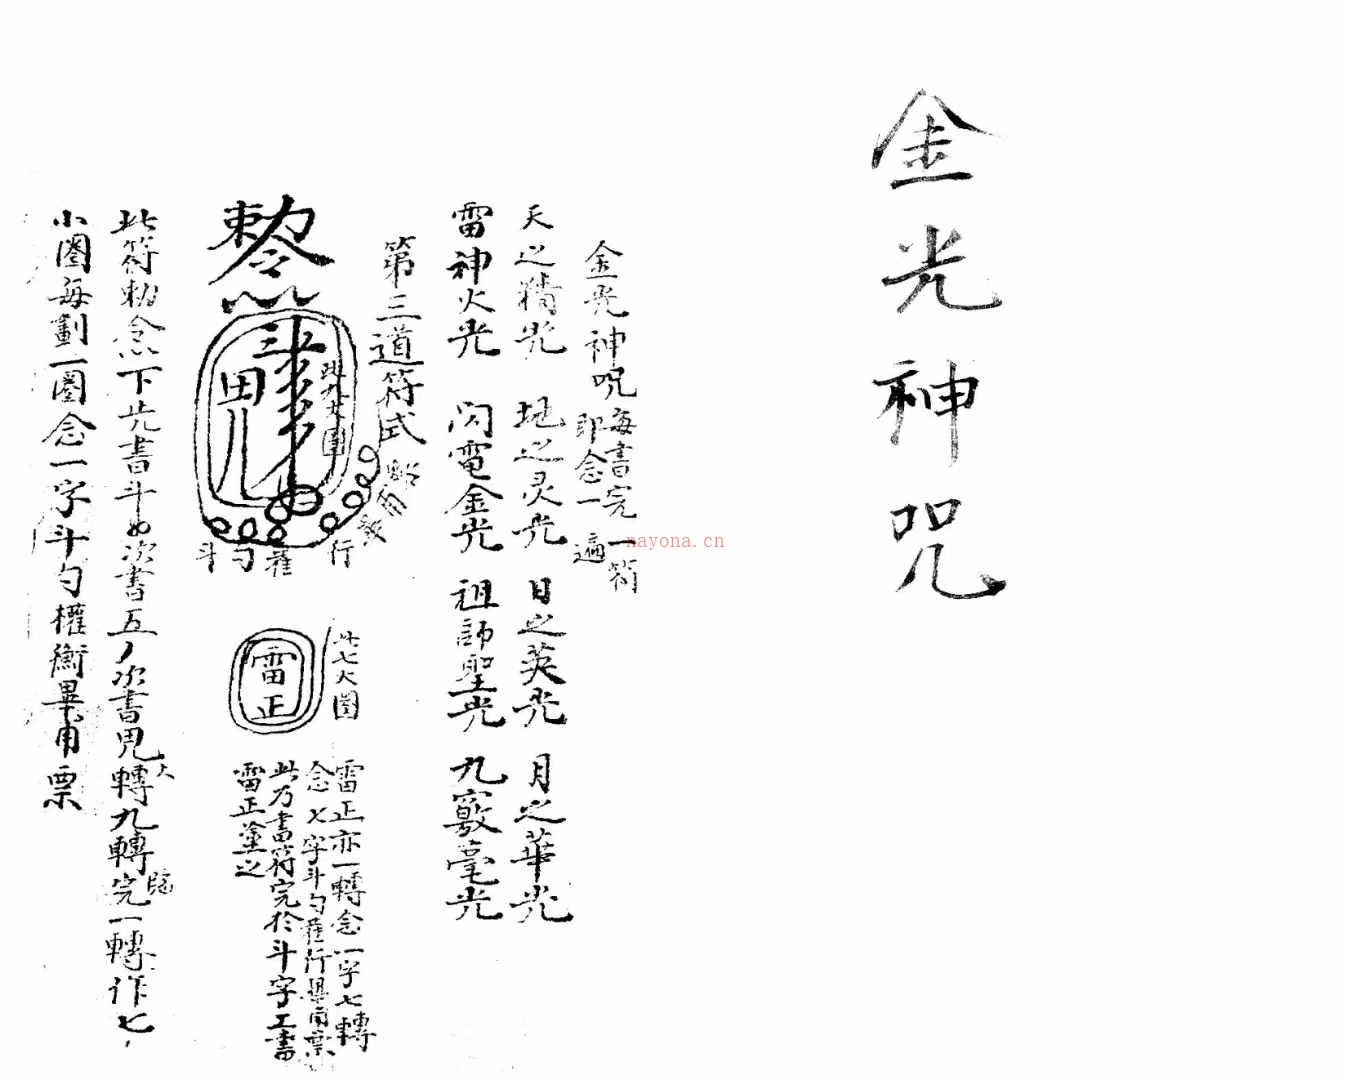 金光神咒
金光神咒
每書完一符
即念一遍
天之精光 地之灵光 日之英光 月之華光
雷神火光 閃電金光 祖師聖光 九竅毫光
第三道符式
勅令
斗
田
此九大圈
斗 勺 雚 行
此七大圈
雷正
雷正亦一轉念一字七轉
念七字斗勺雚行畢甫票
此乃書符完於斗字工書
雷正塗之
此符勅念下先書斗 次書五 次書 轉九轉完一轉作七
大
小圈每劃一圈念一字斗勺權衡畢甪票
nayona.cn